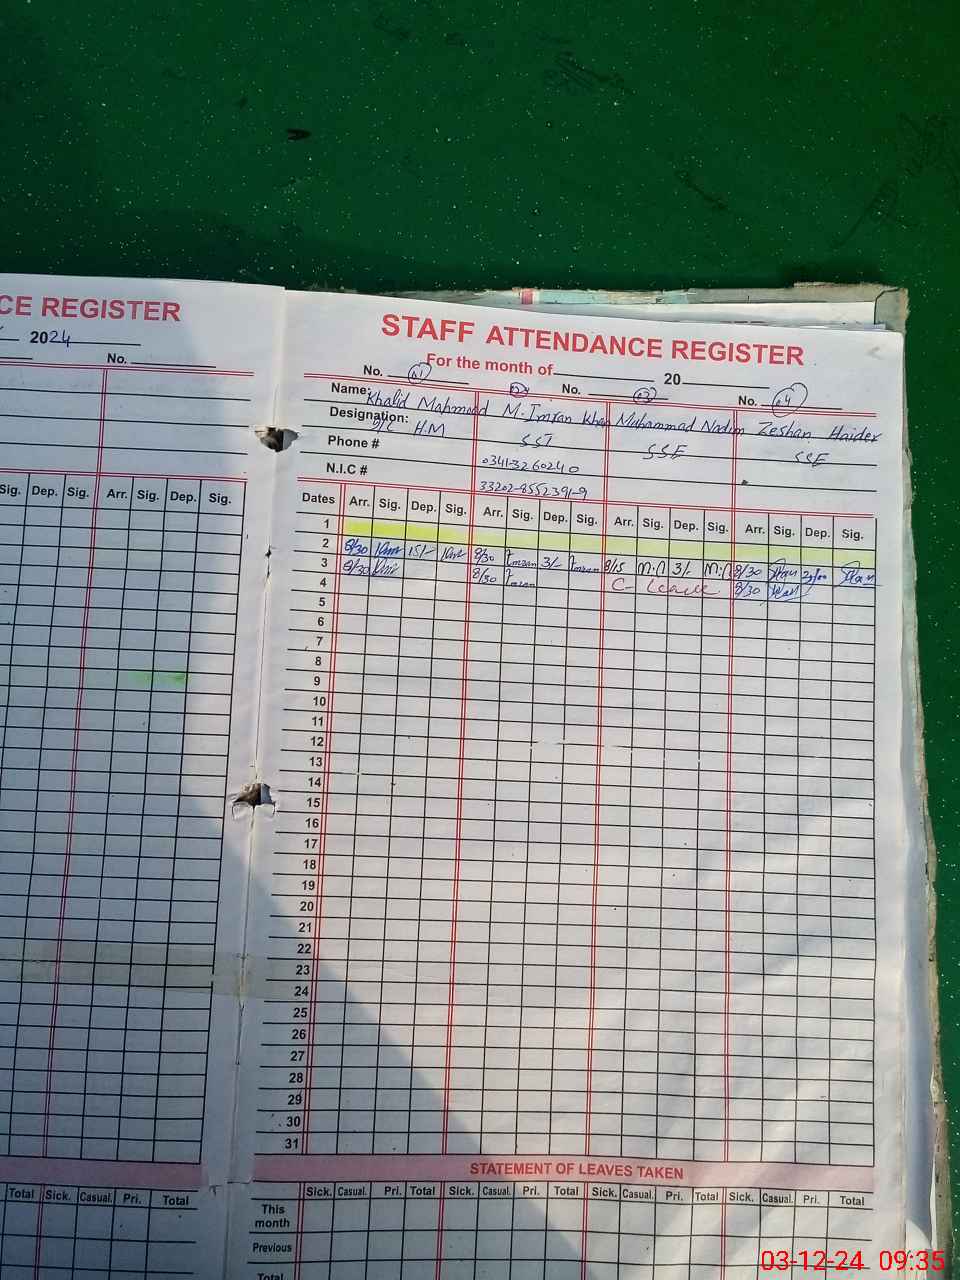 CE REGISTER
2024
No.
Sig. Dep. Sig. Arr. Sig. Dep. Sig.
Total Sick. Casual. Pri. Total
STAFF ATTENDANCE REGISTER
For the month of 20
No. 01 02 No. 03 No. 04
Name: Khalid Mahmood M. Imran Khan Muhammad Nadim Zeshan Haider
Designation: I/C H.M SST SSE SSE
Phone # 0341-3260240
N.I.C # 33202-8552391-9
Dates Arr. Sig. Dep. Sig. Arr. Sig. Dep. Sig. Arr. Sig. Dep. Sig. Arr. Sig. Dep. Sig.
1
2 8/30 15/- 8/30 Imran 3/- Imran 8/15 M.N 3/. M.N 8/30
3 8/30 8/30 Imran C- Leave 8/30
4
5
6
7
8
9
10
11
12
13
14
15
16
17
18
19
20
21
22
23
24
25
26
27
28
29
30
31
STATEMENT OF LEAVES TAKEN
Sick. Casual. Pri. Total Sick. Casual. Pri. Total Sick. Casual. Pri. Total Sick. Casual. Pri. Total
This
month
Previous
Total
03-12-24 09:35